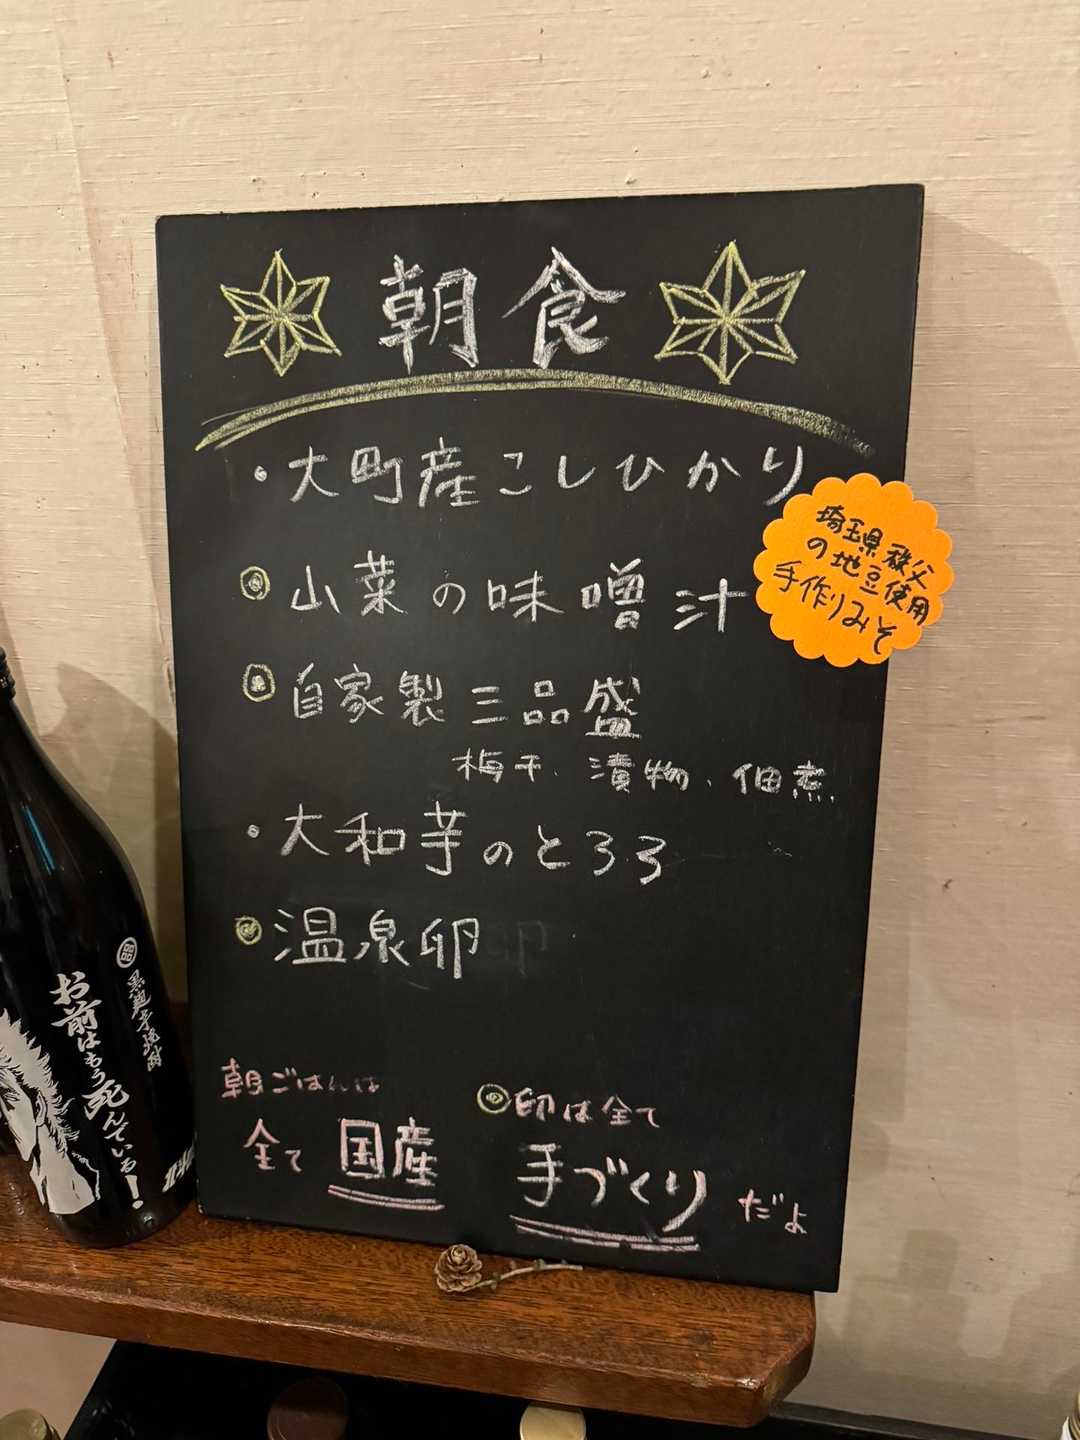 朝食
・大町産こしひかり
◎山菜の味噌汁
埼玉県秩父
の地豆使用
手作りみそ
◎自家製三品盛
梅干、漬物、佃煮
・大和芋のとろろ
◎温泉卵
朝ごはんは
全て国産
◎印は全て
手づくりだよ
黒麹芋焼酎
お前はもう死んでいる!